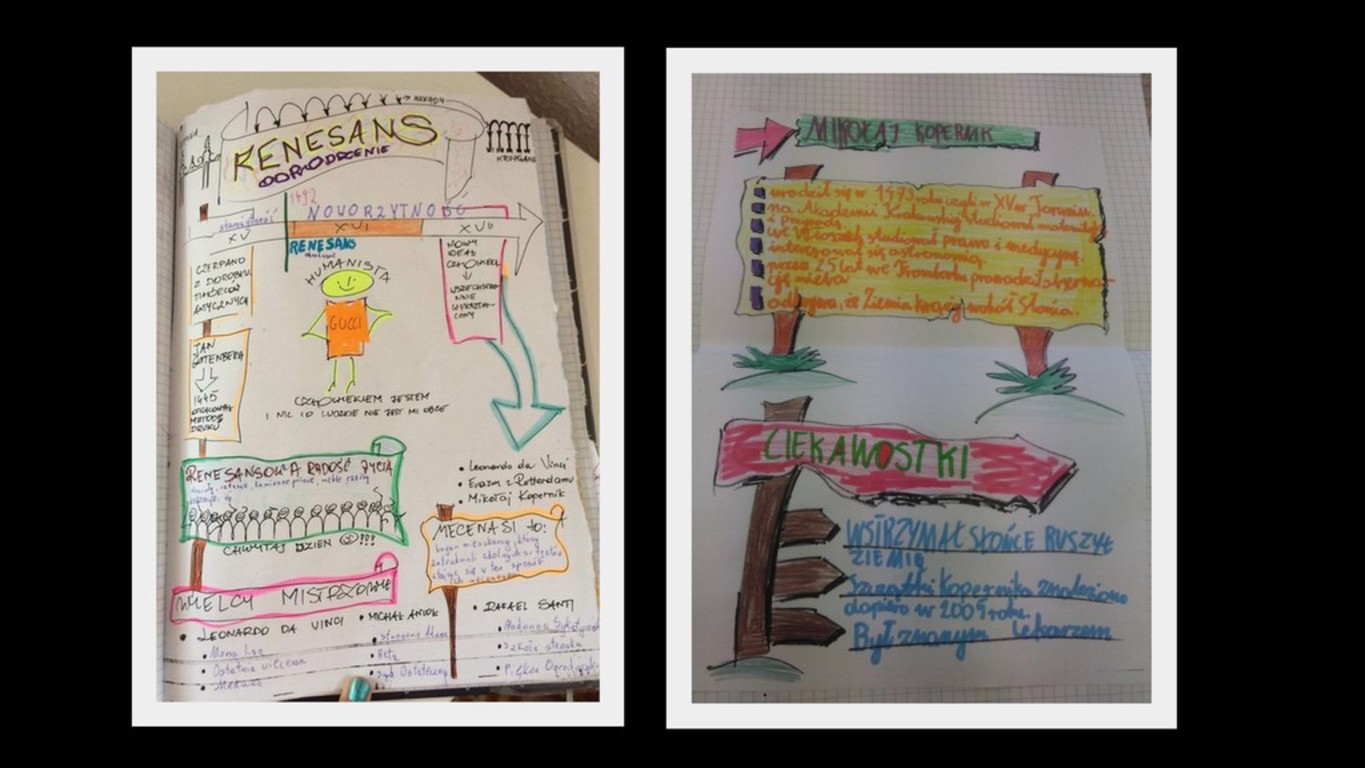 ARKADY
RENESANS
ODRODZENIE
KRUŻGANKI
1492
starożytność
NOWOŻYTNOŚĆ
XV
XVI
XVII
RENESANS
CZERPANO
Z DOROBKU
TWÓRCÓW
ANTYCZNYCH
HUMANISTA
GUCCI
NOWY
IDEAŁ
CZŁOWIEKA
WSZECHSTRO-
NNIE
WYKSZTAŁ-
CONY
JAN
GUTTENBERG
1445
METODĘ
DRUKU
CZŁOWIEKIEM JESTEM
I NIC CO LUDZKIE NIE JEST MI OBCE
RENESANSOWA RADOŚĆ ŻYCIA
CHWYTAJ DZIEŃ !!!
• Leonardo da Vinci
• Erazm z Rotterdamu
• Mikołaj Kopernik
MECENASI to:
WIELCY MISTRZOWIE
• LEONARDO DA VINCI
• Mona Lisa
• Ostatnia wieczerza
• MICHAŁ ANIOŁ
• stworzenie Adama
• Sąd Ostateczny
• RAFAEL SANTI
• Madonna Sykstyńska
• Szkoła ateńska
• Piękna Ogrodniczka
MIKOŁAJ KOPERNIK
urodził się w 1473 roku czyli w XV w Toruniu.
na Akademii Krakowskiej studiował matematykę
i przyrodę
we Włoszech studiował prawo i medycynę.
interesował się astronomią.
przez 25 lat we Fromborku prowadził obserwa-
cję nieba
odkrywa, że Ziemia krąży wokół Słońca.
CIEKAWOSTKI
WSTRZYMAŁ SŁOŃCE RUSZYŁ
ZIEMIĘ
Szczątki Kopernika znaleziono
dopiero w 2005 roku.
Był znanym lekarzem